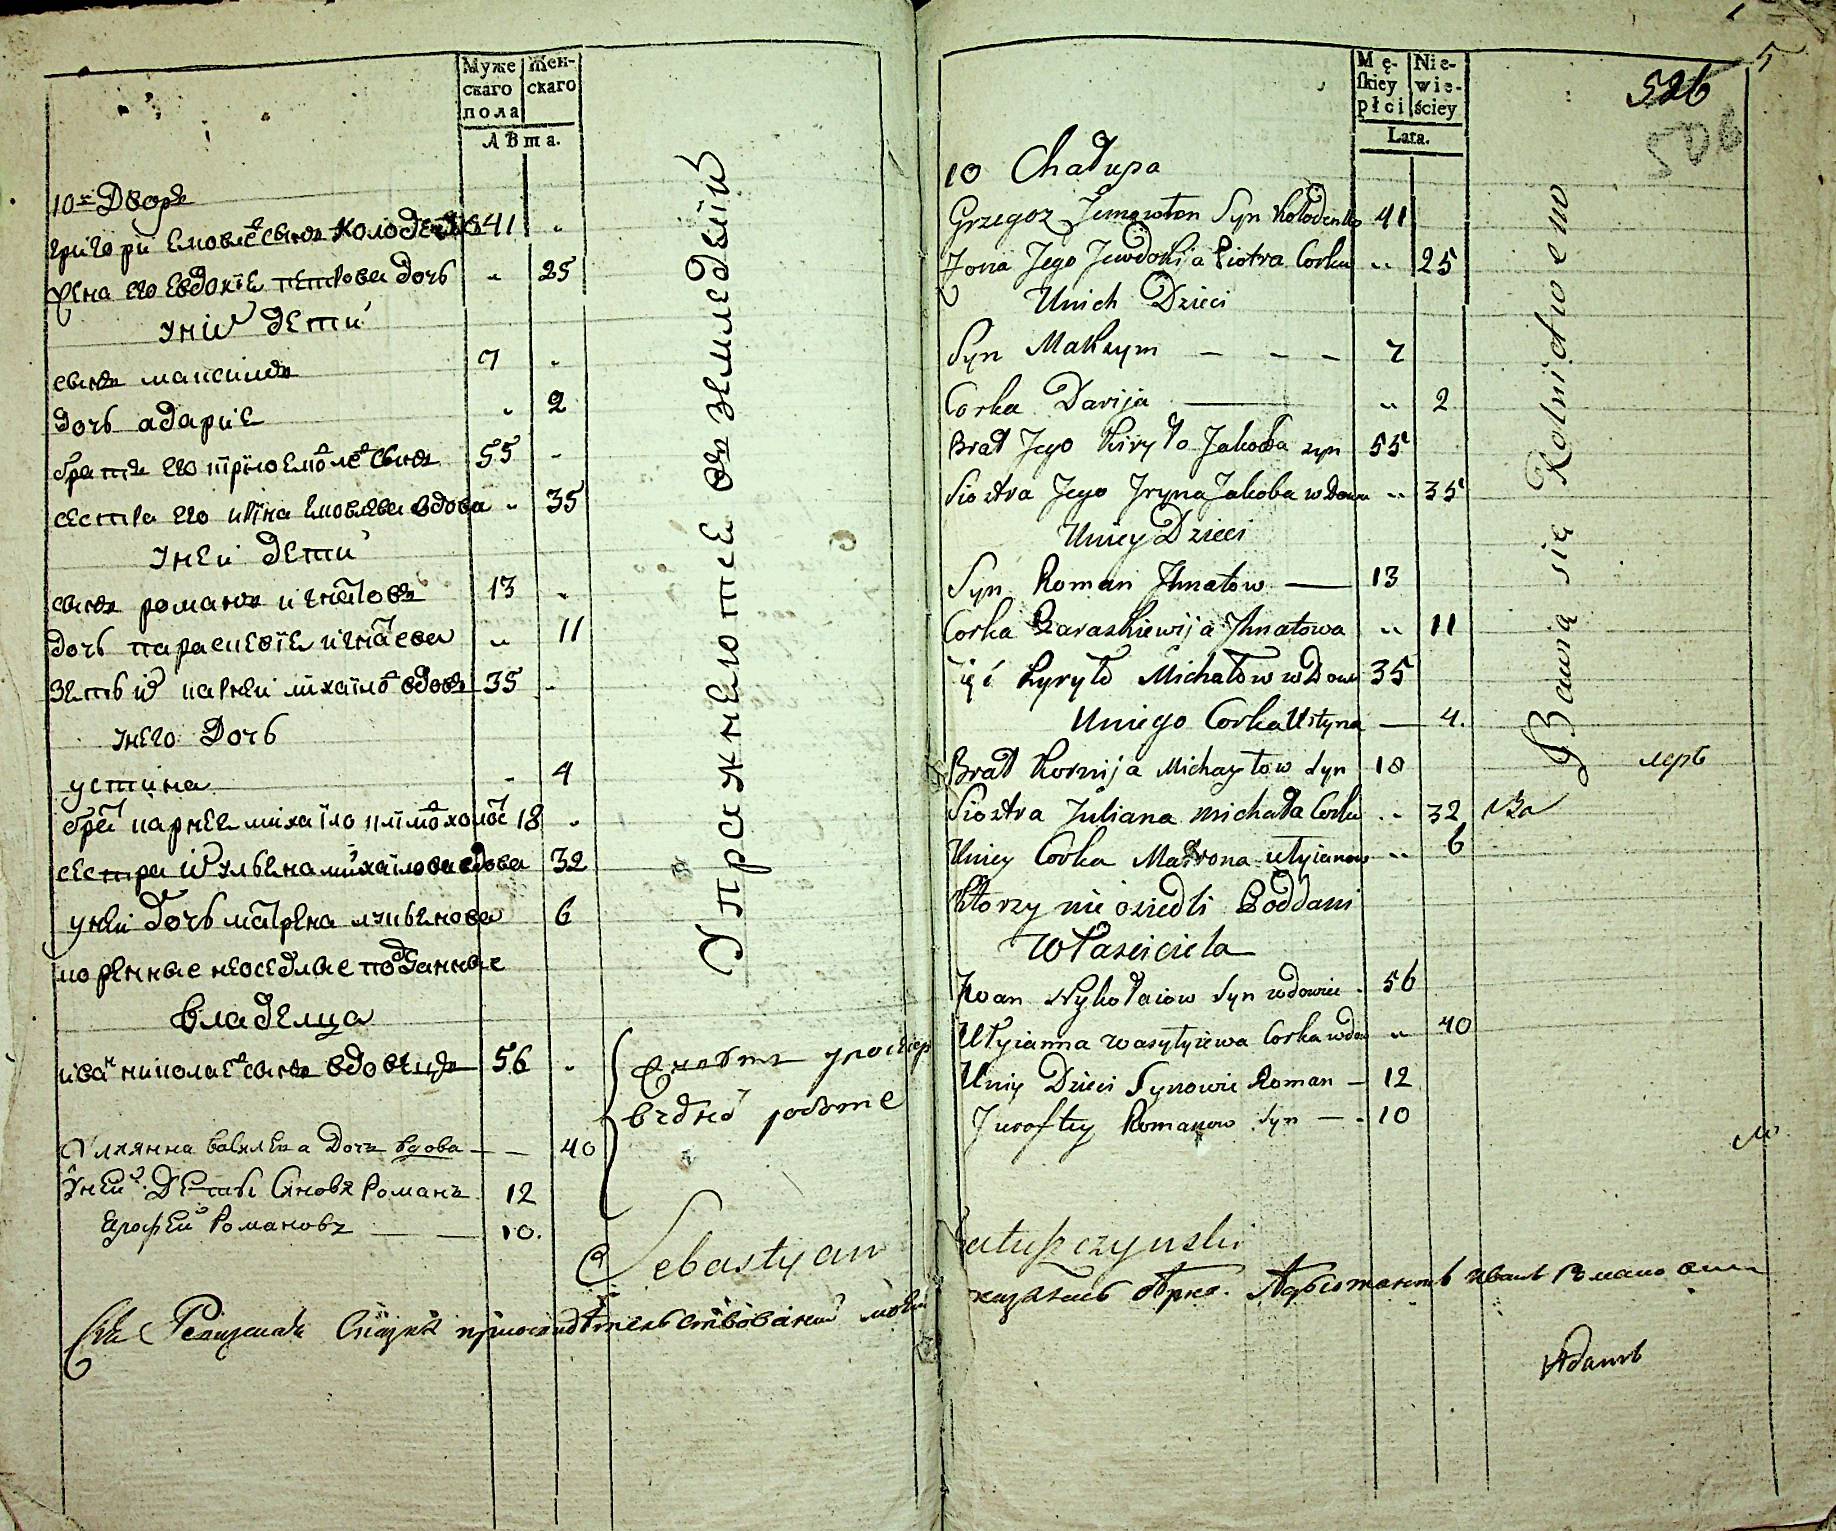 Муже
скаго
пола
Жен-
скаго
лѣта.
10й Дворъ
григори емовлеⷡ сынъ колоденко 41 "
жена его евдокіе петрова дочь " 25
у ниⷯ дети
сынъ максимъ 7 "
дочь адарие " 2
братъ его кирило емовлеⷡ сынъ 55 "
сестра его ирина емовлева вдова " 35
у ней дети
сынъ романъ игнатовъ 13 "
дочь параскевіе игнатова " 11
зеть иⷯ карней михаилоⷡ вдовъ 35 "
у него дочь
устина " 4
браⷮ карнеа михаило 18 "
сестра иⷯ улвена михаилова вдова 32
у ней дочь матрена 6
коренные неоседлые подданные
владелца
иваⷩ николаеⷡ сынъ вдовецъ 56 "
Улиянна василева Дочь вдова — — 40
У ней Дети Синовя Романъ 12
Ерофей Романовъ — — 10.
Упражнеютсе въ земледеліи
в черной работе
Mę-
skiey
płci
Nie-
wie-
ściey
Lata.
526
506
5
10 Chałupa
Grzegoz Jemowłon Syn Kołodenko 41
Żona Jego Jewdokija Piotra Corka " 25
U nich Dzieci
Syn Maksym — — — 7
Corka Darija — " 2
Brat Jego Kiryło Jakoba syn 55
Siostra Jego Iryna Jakoba wdowa " 35
U niey Dzieci
Syn Roman Ihnatow — 13
Corka Paraskiewija Ihnatowa " 11
Zięć Kyryło Michałow wdow 35
U niego Corka Ustyna — 4.
Brat Kornija Michayłow Syn 18
Siostra Juliana Michała Corka " 32
U niey Corka Matrona Ułyianow " 6
Ktorzy nie osiedli Poddani
Właściciela
Iwan Nykołaiow Syn wdowiec 56
Ułyianna Wasyłyiewa Corka wdow " 40
U niy Dzieci Synowie Roman — 12
Jurofiey Romanow Syn — 10
Bawią się Rolnictwem
Sebastyan Ratuszczynski
Сия Ревизская Сказка
Иванъ
Адамъ